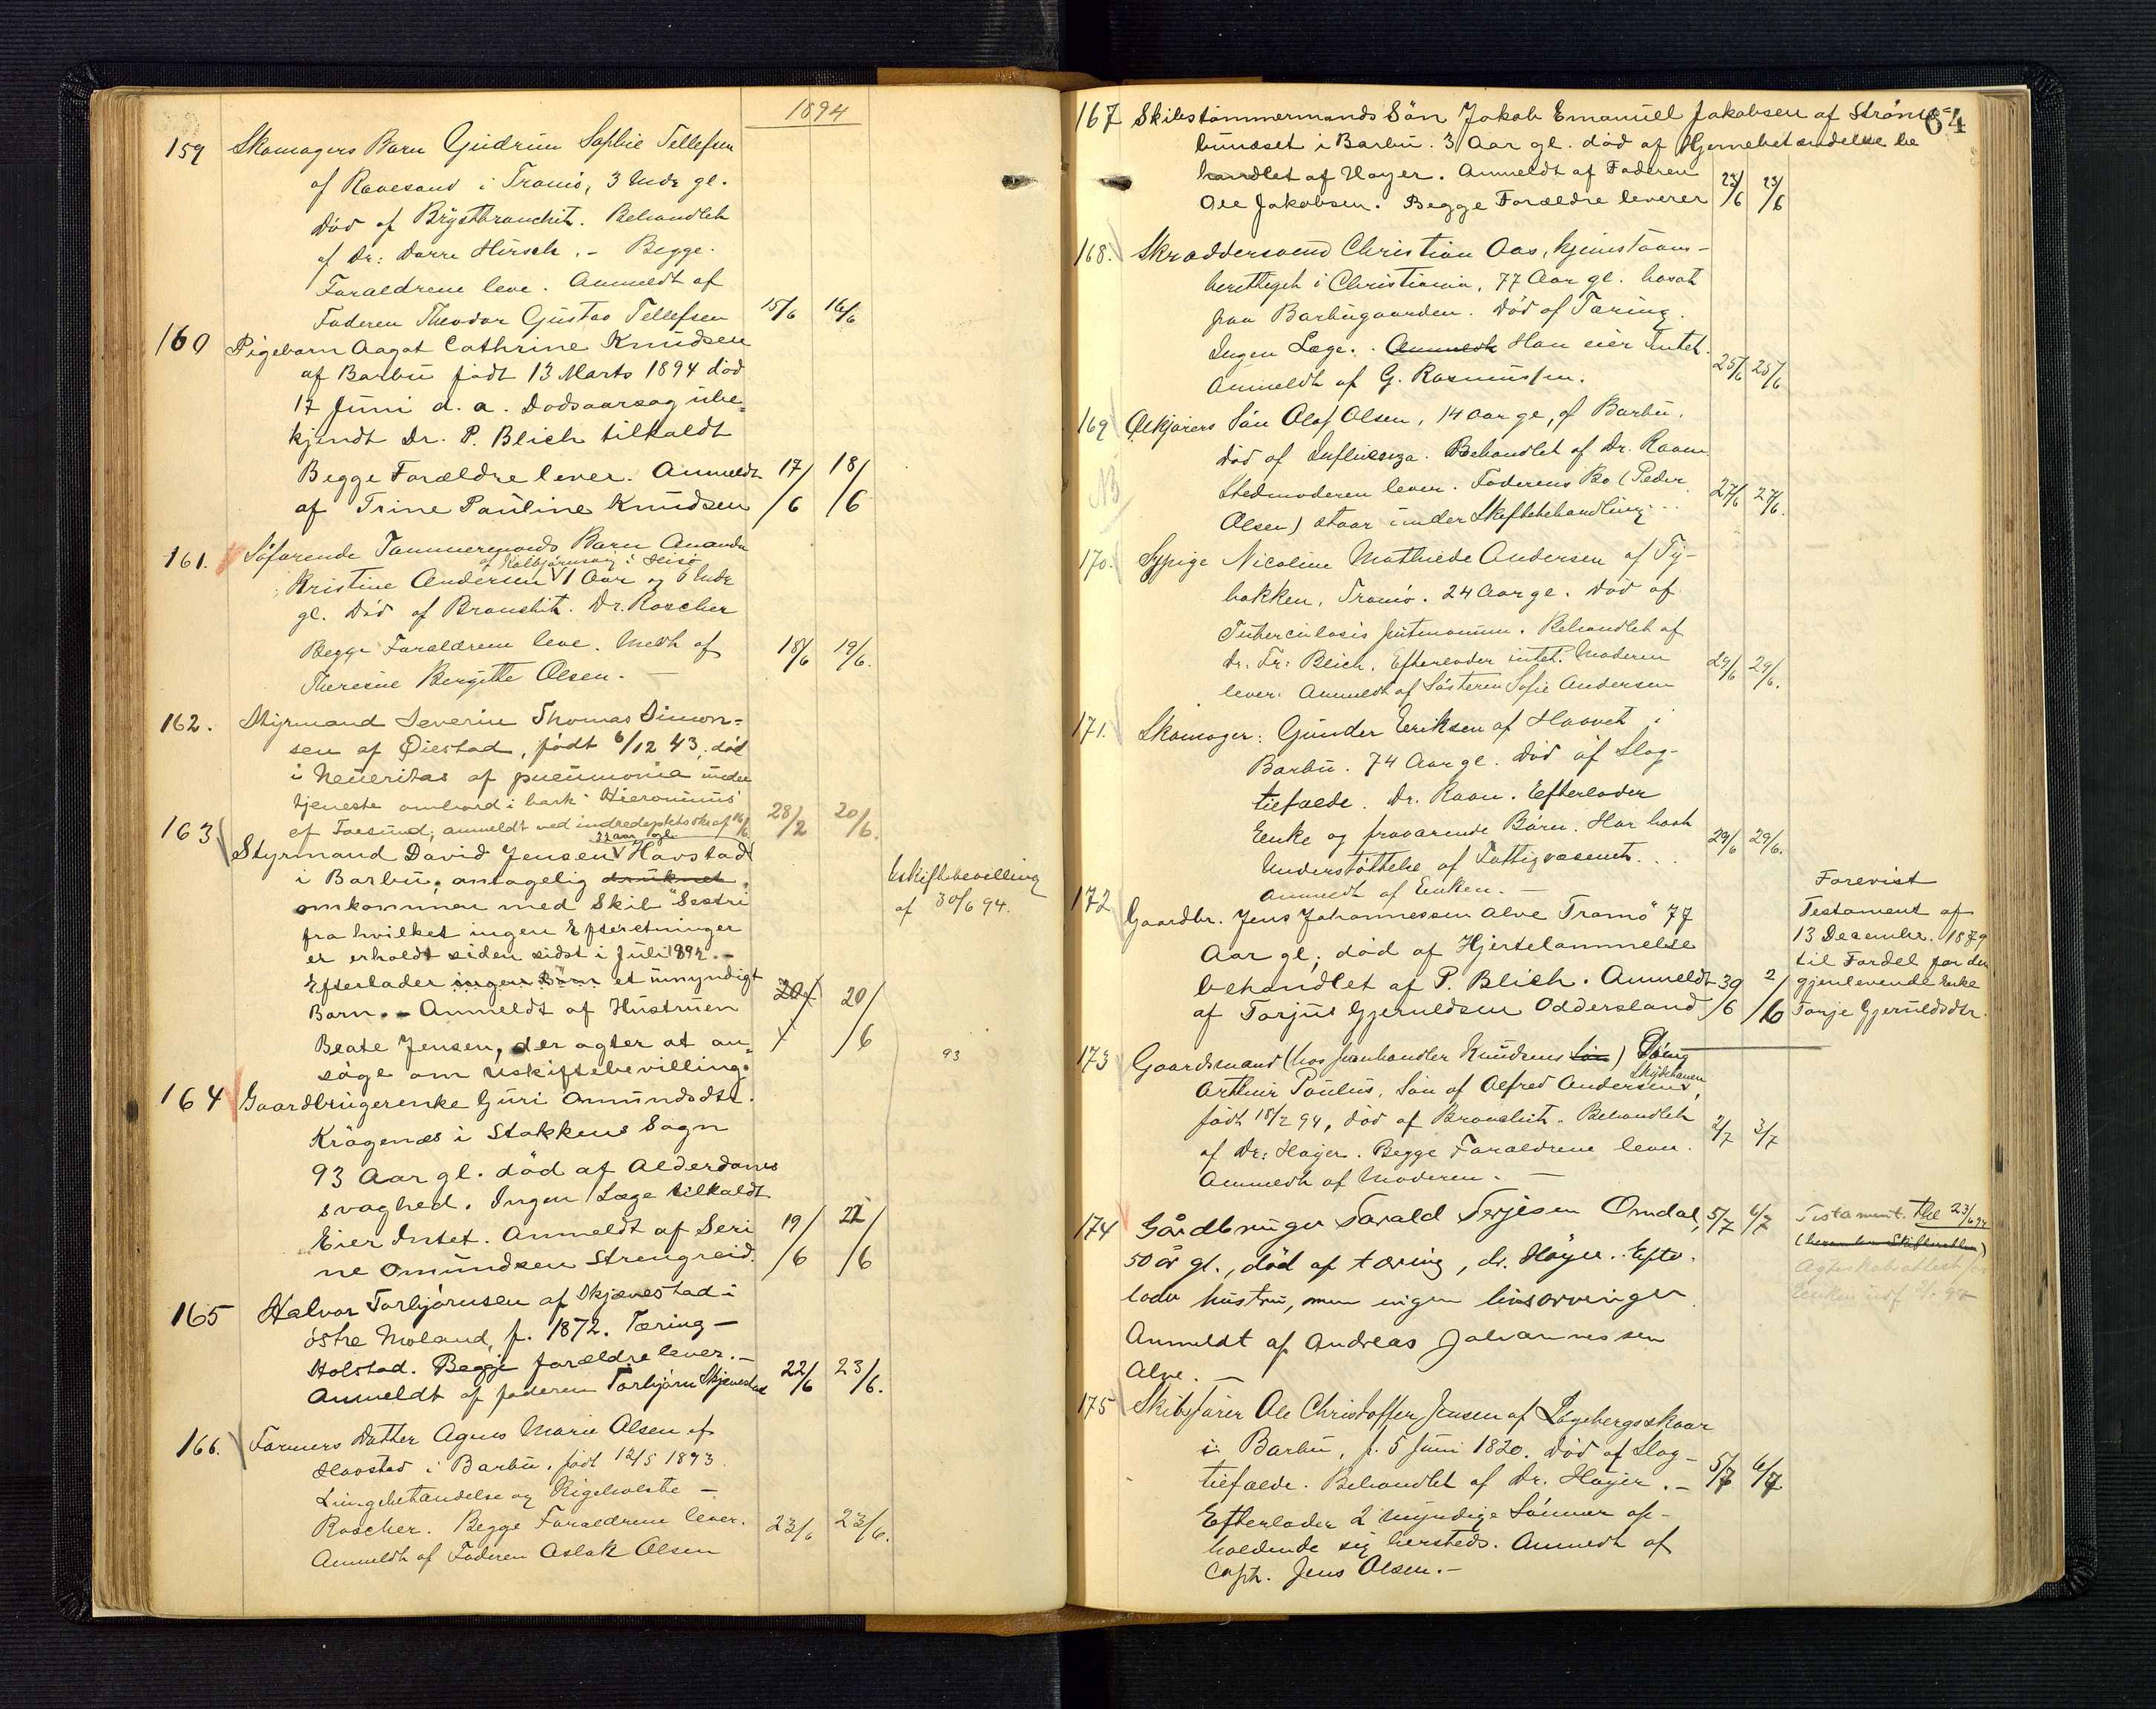 1894
159 Skomagers Barn Gudrun Sophie Tellefsen
af Ravesand i Tromö, 3 Mdr gl.
Död af Brystbronchit. Behandlet
af Dr: Darre Hirsch. – Begge
Forældrene leve. Anmeldt af
Faderen Theodor Gustav Tellefsen 15/6 16/6
160 Pigebarn Aagot Cathrine Knudsen
af Barbu födt 13 Marts 1894 död
17 Juni d. a. Dödsaarsag ube-
kjendt Dr. P. Blich tilkaldt
Begge Forældre lever. Anmeldt 17/6 18/6
af Trine Pauline Knudsen
161. Söfarende Tömmermands Barn Amanda
af Kolbjörnsvig i Hisö
Kristine Andersen 1 Aar og 6 Mdr
gl. Död af Bronchit. Dr. Roscher
Begge Forældrene leve. Meldt af 18/6 19/6.
Theresie Bergitte Olsen. –
162. Styrmand Severin Thomas Simon-
sen af Öiestad, födt 6/12 43, död
i Neueritas af pneumonia under
tjeneste ombord i bark "Hieronimus"
af Farsund, anmeldt ved 28/2 20/6.
163 Styrmand David Jensen Havstad
aar gl.
i Barbu, antagelig druknet,
omkommen med Skib "Sestri"
fra hvilket ingen Efterretninger
er erholdt siden sidst i Juli 1892. –
Efterlader ingen Börn et umyndigt
Barn. – Anmeldt af Hustruen 20/ 20/6
Beate Jensen, der agter at an-
söge om uskiftebevilling.
Uskiftebevilling
af 30/6 94.
93
164 Gaardbrugerenke Guri Omundsdtr.
Krögenæs i Stokkens Sogn
93 Aar gl. död af Alderdoms
svaghed. Ingen Læge tilkaldt
Eier Intet. Anmeldt af Seri 19/6 21/6
ne Omundsen Strengreid.
165 Halvor Torbjörnsen af Skjævestad i
östre Moland, f. 1872. Tæring –
Holstad. Begge forældre lever. –
Anmeldt af faderen Torbjörn Skjævestad 22/6 23/6.
166. Farmers Datter Agnes Marie Olsen af
Havstad i Barbu, födt 12/5 1893.
Lungebetændelse og Kighoste –
Roscher. Begge Forældrene lever.
Anmeldt af Faderen Aslak Olsen 23/6 23/6.
64
167 Skibstömmermands Sön Jakob Emanuel Jakobsen af Ströms-
bunæset i Barbu. 3 Aar gl. död af Hjernebetændelse be
handlet af Höyer. Anmeldt af Faderen
Ole Jakobsen. Begge Forældre leverer 23/6 23/6
168. Skræddersvend Christian Aas, hjemstavns-
berettiget i Christiania, 77 Aar gl. bosat
paa Barbugaarden. Död af Tæring.
Ingen Læge. Anmeldt Han eier Intet.
Anmeldt af G. Rasmussen. 25/6 25/6
169 Ölkjörers Sön Olaf Olsen, 14 Aar gl, af Barbu.
Död af Influenza. Behandlet af Dr. Raon.
NB
Stedmoderen lever. Faderens Bo (Peder
Olsen) staar under Skiftebehandling... 27/6 27/6.
170. Sypige Nicoline Mathilde Andersen af Ty-
bakken, Tromö. 24 Aar gl. Död af
Tuberculosis pulmonum. Behandlet af
Dr. Fr: Blich. Efterlader intet. Moderen 29/6 29/6.
lever. Anmeldt af Sösteren Sofie Andersen
171. Skomager: Gunder Eriksen af Havet i
Barbu. 74 Aar gl. Död af Slag-
tilfælde. Dr. Raon. Efterlader
Enke og fraværende Börn. Har havt 29/6 29/6.
Understöttelse af Fattigvæsenet...
Anmeldt af Enken. –
172 Gaardbr. Jens Johannessen Alve Tromö 77
Aar gl, död af Hjertelammelse
behandlet af P. Blich. Anmeldt 30/6 2/6
af Torjus Gjeruldsen Oddersland
Forevist
Testament af
13 December. 1879
til Fordel for den
gjenlevende Enke
Tonje Gjeruldsdtr.
173 Gaardsmand (hos Jernhandler Knudsens Sön) Dreng
Skytehaven
Arthur Paulus, Sön af Alfred Andersen,
födt 18/2 94, död af Bronchit. Behandlet
af Dr: Höyer. Begge Forældrene lever. 2/7 3/7
Anmeldt af Moderen. –
174 Gårdbruger Tarald Terjesen Omdal, 5/7 6/7
50 år gl., död af tæring, dr. Höyer. Efter-
lader hustru, men ingen livsarvinger
Anmeldt af Andreas Johannessen
Alve. –
Testament. 23/6 94
175 Skibsförer Ole Christoffer Jensen af Lögebergsskaar
i Barbu, f. 5 Juni 1820. Död af Slag-
tilfælde. Behandlet af Dr. Höyer. – 5/7 6/7
Efterlader 2 myndige Sönner op-
holdende sig hersteds. Anmeldt af
Capt. Jens Olsen. –